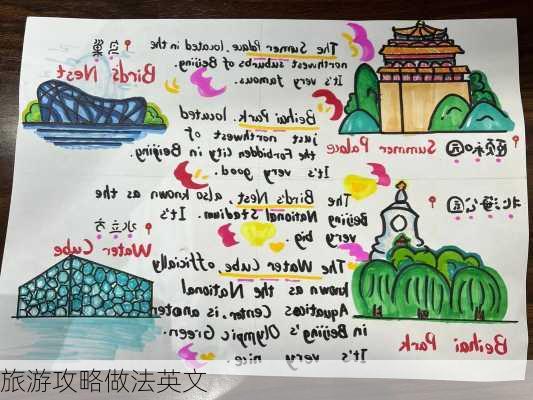 The Summer Palace. located in the
northwest suburbs of Beijing.
It's very famous.
颐和园
Summer Palace
鸟巢
Bird's Nest
Beihai Park. located
just northwest of
the Forbidden City in Beijing.
It's very good.
北海公园
Beihai Park
The Bird's Nest. also known as the
Beijing National Stadium. It's
very big.
水立方
Water Cube
The Water Cube officially
known as the National
Aquatics Center, is another
in Beijing's Olympic Green.
It's very nice.
旅游攻略做法英文